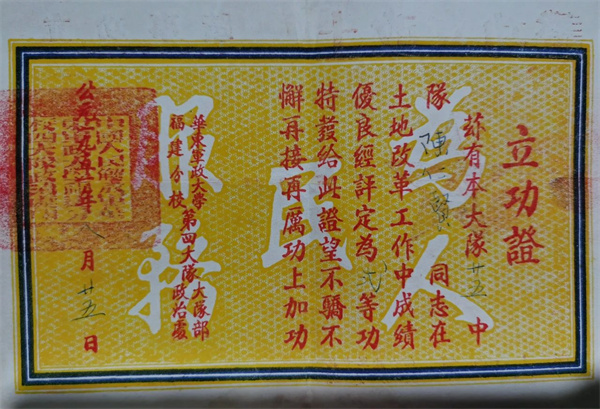 立功證
茲有本大隊廿五中
隊陳仁賢同志在
土地改革工作中成績
優良經評定為弍等功
特發給此證望不驕不
懈再接再厲功上加功
華東軍政大學
福建分校
第四大隊
大隊部
政治處
公元一九五一年 月廿五日
為人民服務